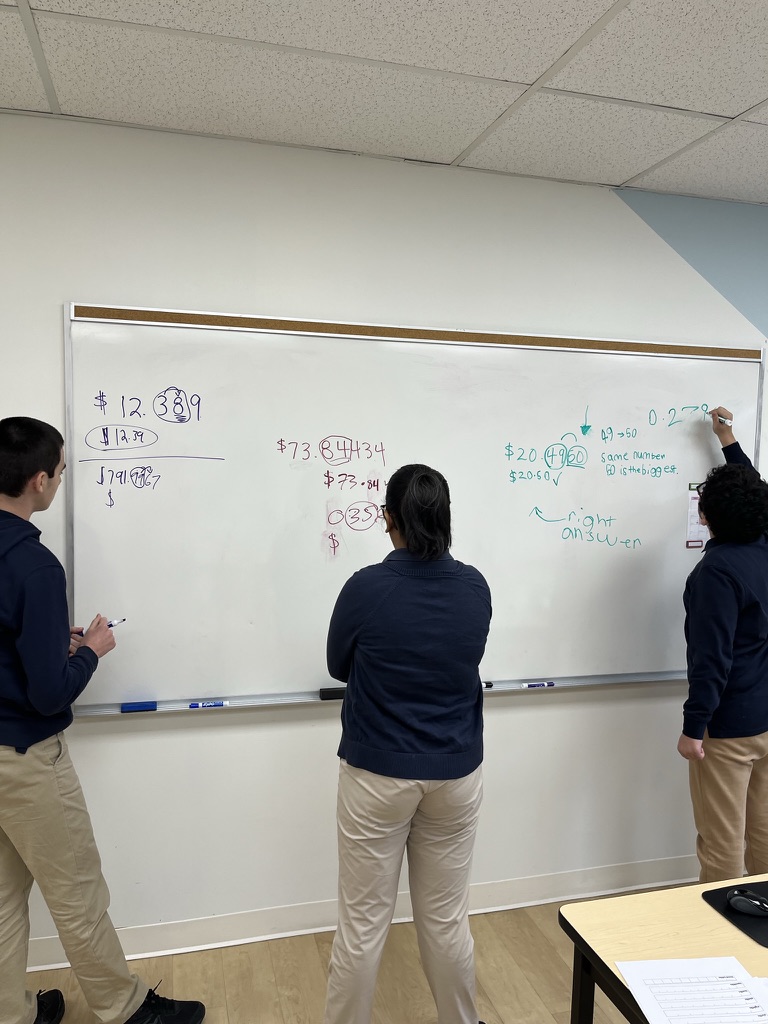 $ 12.389
$ 12.39
$
$73.84434
$73.84
035
$
$20.4960
$20.50 ✓
49 → 50
same number
50 is the bigger.
right
answer
0.2